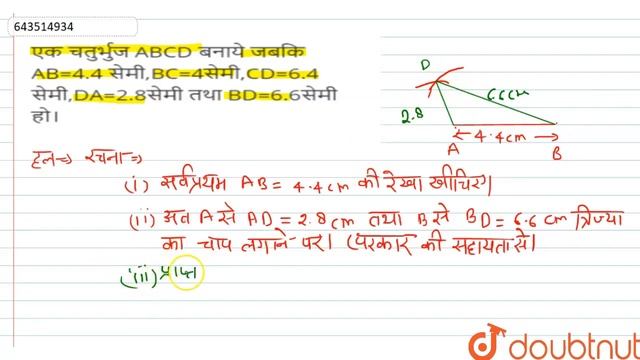 643514934
एक चतुर्भुज ABCD बनाये जबकि
AB=4.4 सेमी,BC=4सेमी,CD=6.4
सेमी,DA=2.8सेमी तथा BD=6.6सेमी
हो।
D
6.6cm
2.8
4.4cm
A
B
हल⇒ रचना⇒
(i) सर्वप्रथम AB = 4.4cm की रेखा खीचिए।
(ii) अत A से AD = 2.8cm तथा B से BD = 6.6 cm त्रिज्या
का चाप लगाने पर। (परकार की सहायता से।
(iii) प्राप्त
doubtnut